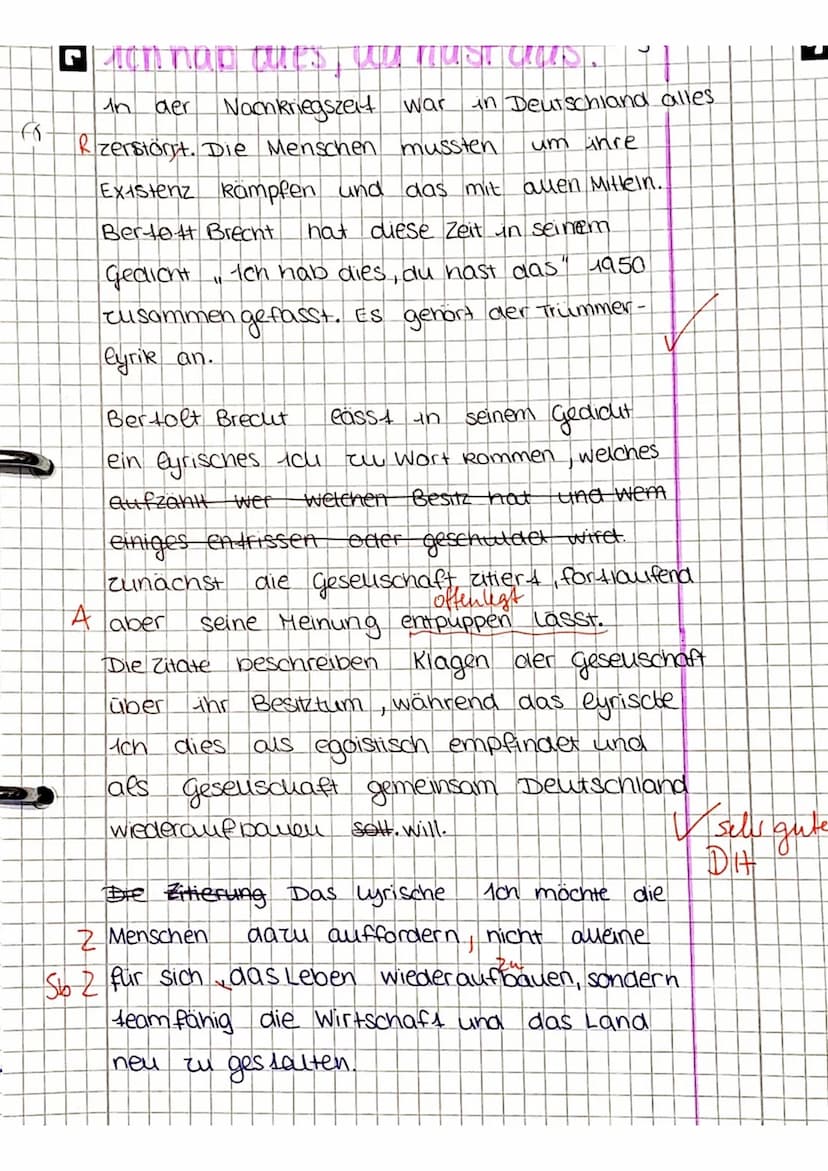 Ich hab dies, du hast das.
In der Nachkriegszeit war in Deutschland alles
R zerstörrt. Die Menschen mussten um ihre
Existenz kämpfen und das mit allen Mitteln.
Bertolt Brecht hat diese Zeit in seinem
Gedicht „Ich hab dies, du hast das" 1950
zusammengefasst. Es gehört der Trümmer-
lyrik an.
Bertolt Brecht lässt in seinem Gedicht
ein lyrisches Ich zu Wort kommen, welches
aufzählt wer welchen Besitz hat und wem
einiges entrissen oder geschuldet wird.
zunächst die Gesellschaft zitiert, fortlaufend
offenlegt
A aber seine Meinung entpuppen lässt.
Die Zitate beschreiben Klagen der Gesellschaft
über ihr Besitztum, während das lyrische
Ich dies als egoistisch empfindet und
als Gesellschaft gemeinsam Deutschland
wiederaufbauen soll. will.
sehr gute
DH
Die Zitierung Das lyrische Ich möchte die
Z Menschen dazu auffordern, nicht alleine
zu
Sb Z für sich das Leben wiederaufbauen, sondern
teamfähig die Wirtschaft und das Land
neu zu gestalten.